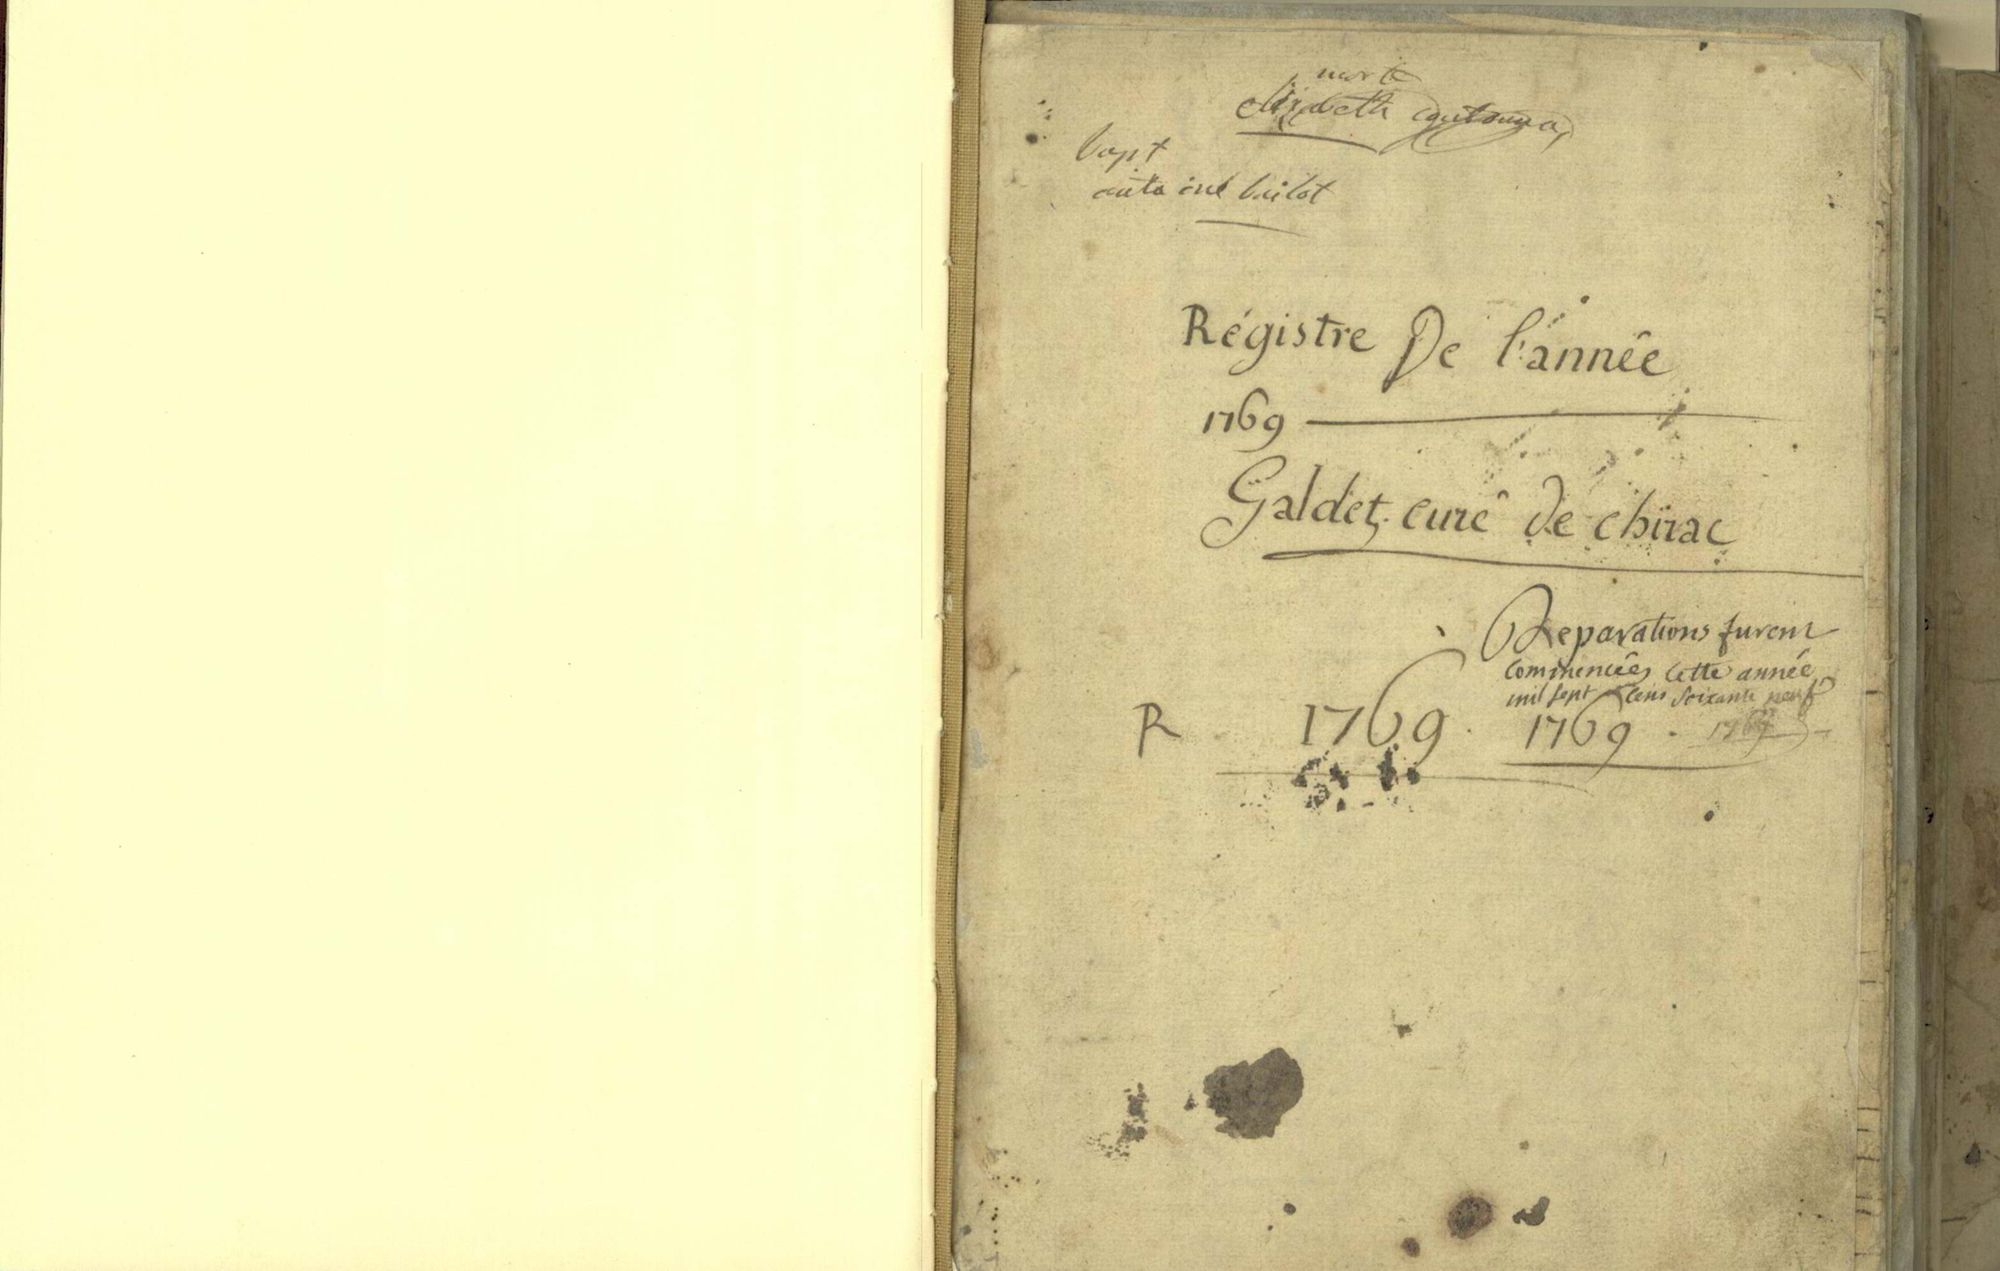 morte
elizabeth
bapt
antoine bailot
Régistre De l'année
1769
Galdet, curé De chirac
Reparations furent
commencées cette année
mil sept cens soixante neuf
R 1769. 1769. 1769